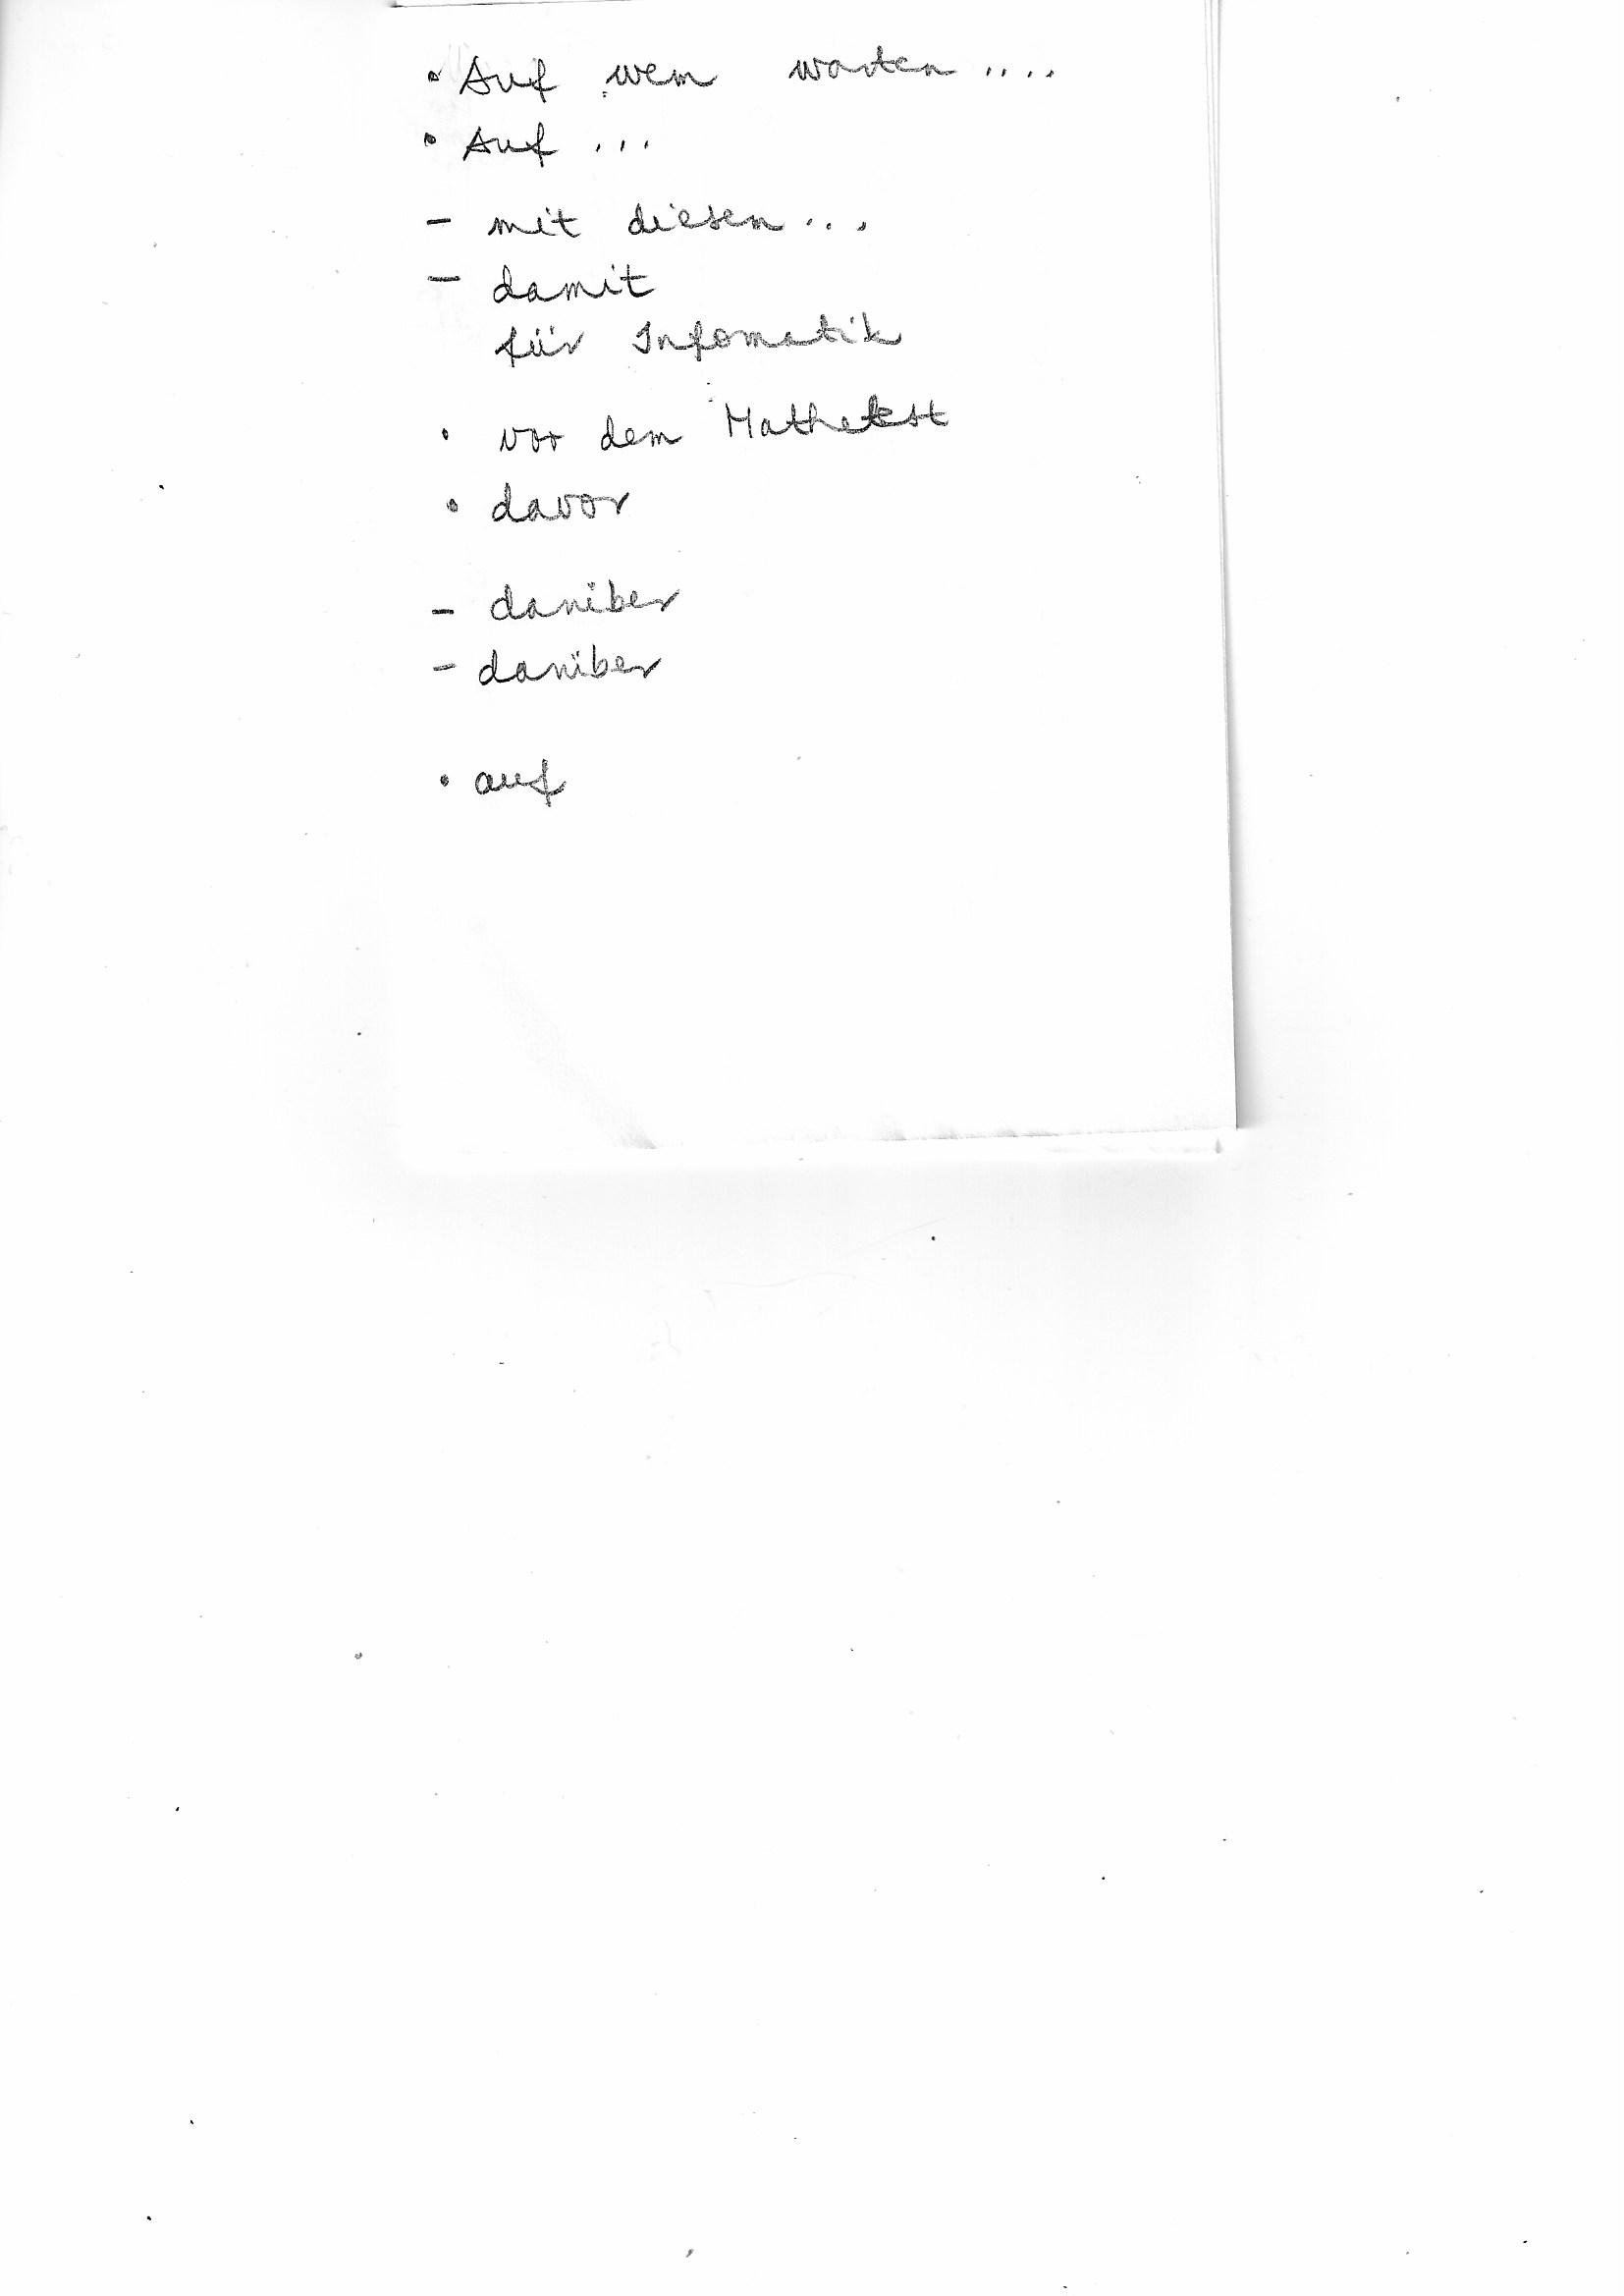 • Auf wem warten ....
• Auf ...
- mit diesen ...
- damit
für Infomatik
• vor dem Mathetest
• davor
- darüber
- darüber
• auf